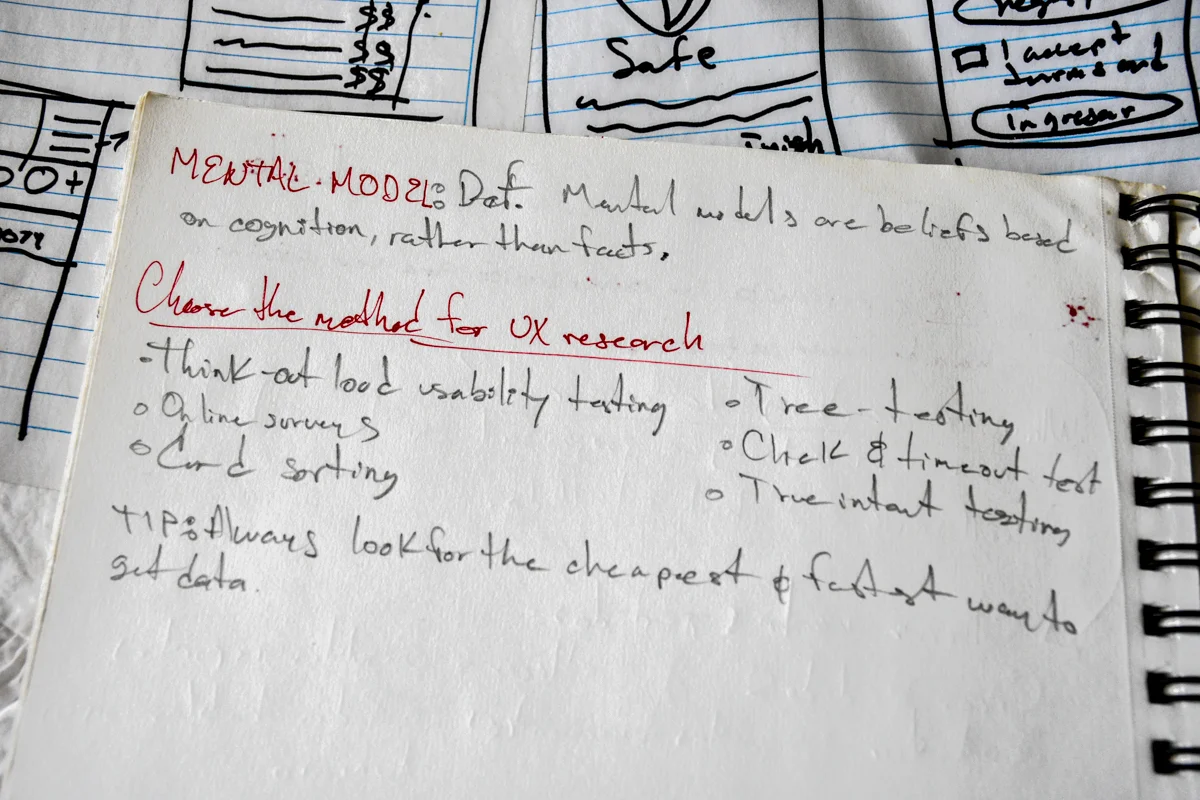 $$
$$
$$
Safe
I accept
terms and
Ingresar
MENTAL MODEL: Def. Mental models are beliefs based
on cognition, rather than facts.
Choose the method for UX research
• Think-out load usability testing
• Online surveys
• Card sorting
• Tree-testing
• Check & timeout test
• True intent testing
TIP: Always look for the cheapest & fastest way to
get data.